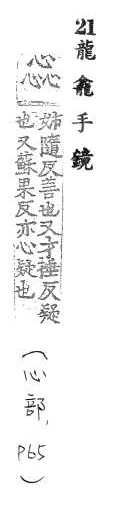 21龍龕手鏡
惢
姉隨反善也又才捶反疑
也又蘇果反亦心疑也
(心部, P65)